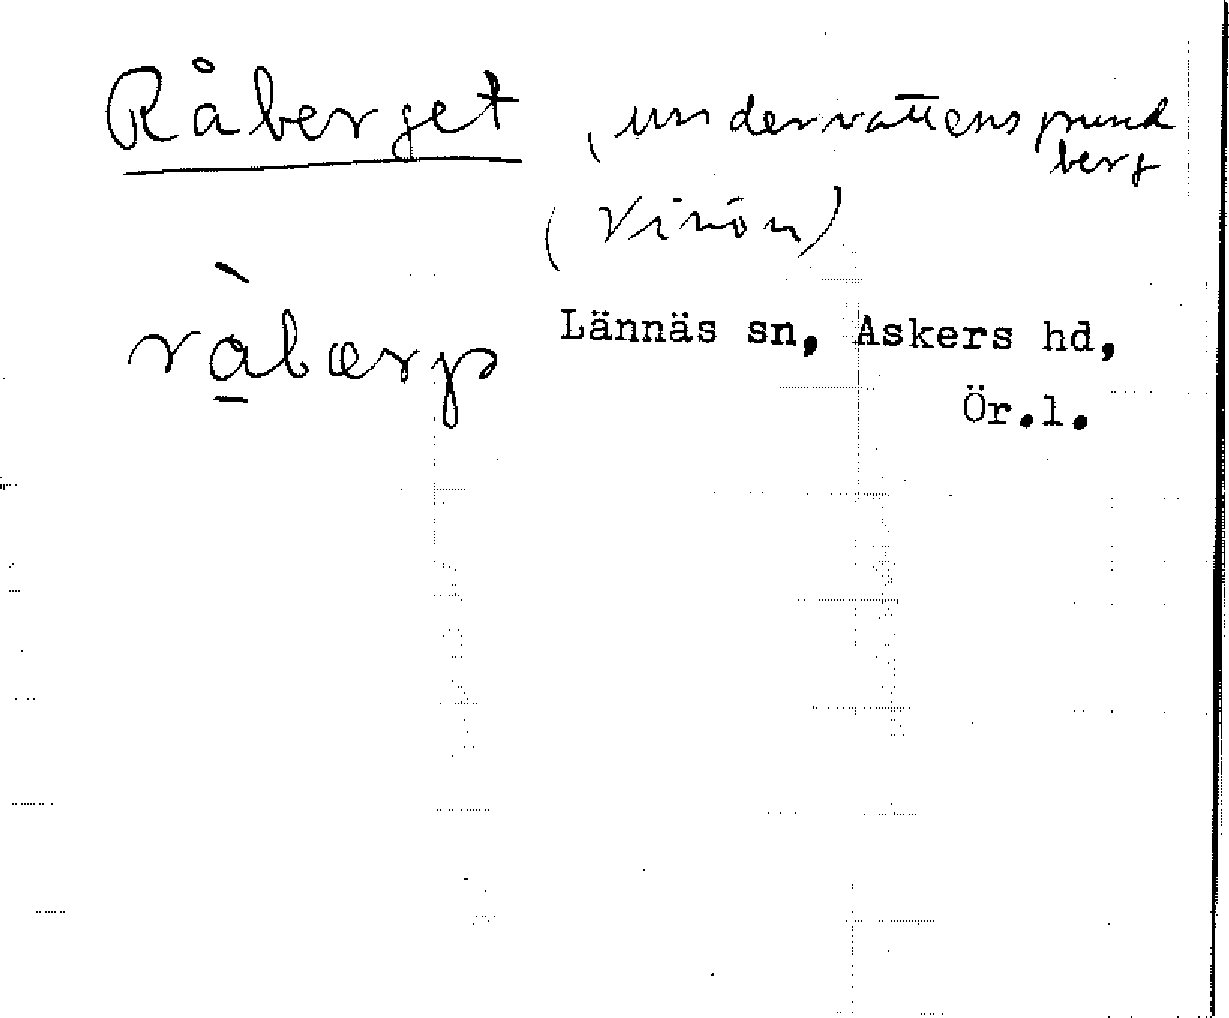 Råberget, undervattensgrund
berg
(Vinön)
Lännäs sn, Askers hd,
Ör.l.